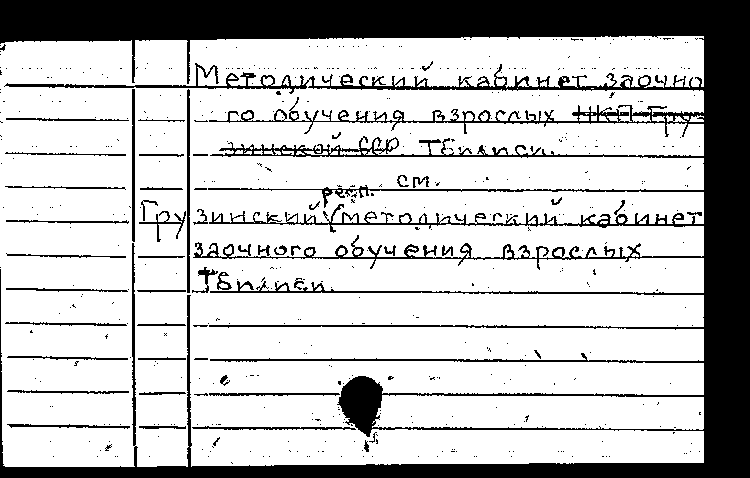 Методический кабинет заочно
го обучения взрослых НКП Гру
зинской ССР Тбилиси.
см.
респ.
Грузинский методический кабинет
заочного обучения взрослых
Тбилиси.